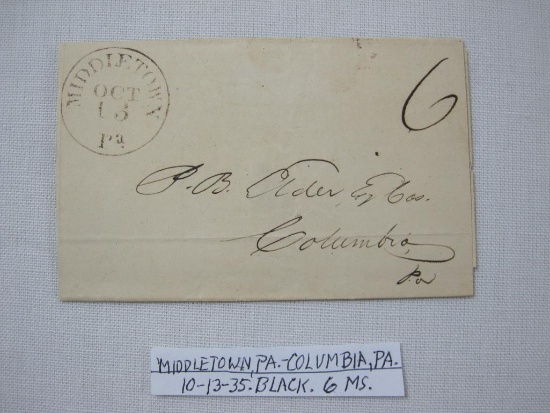 MIDDLETOWN
OCT
13
Pa
6
P. B. Elder, Esq Cas.
Columbia
Pa
MIDDLETOWN, PA.-COLUMBIA, PA.
10-13-35. BLACK. 6 MS.